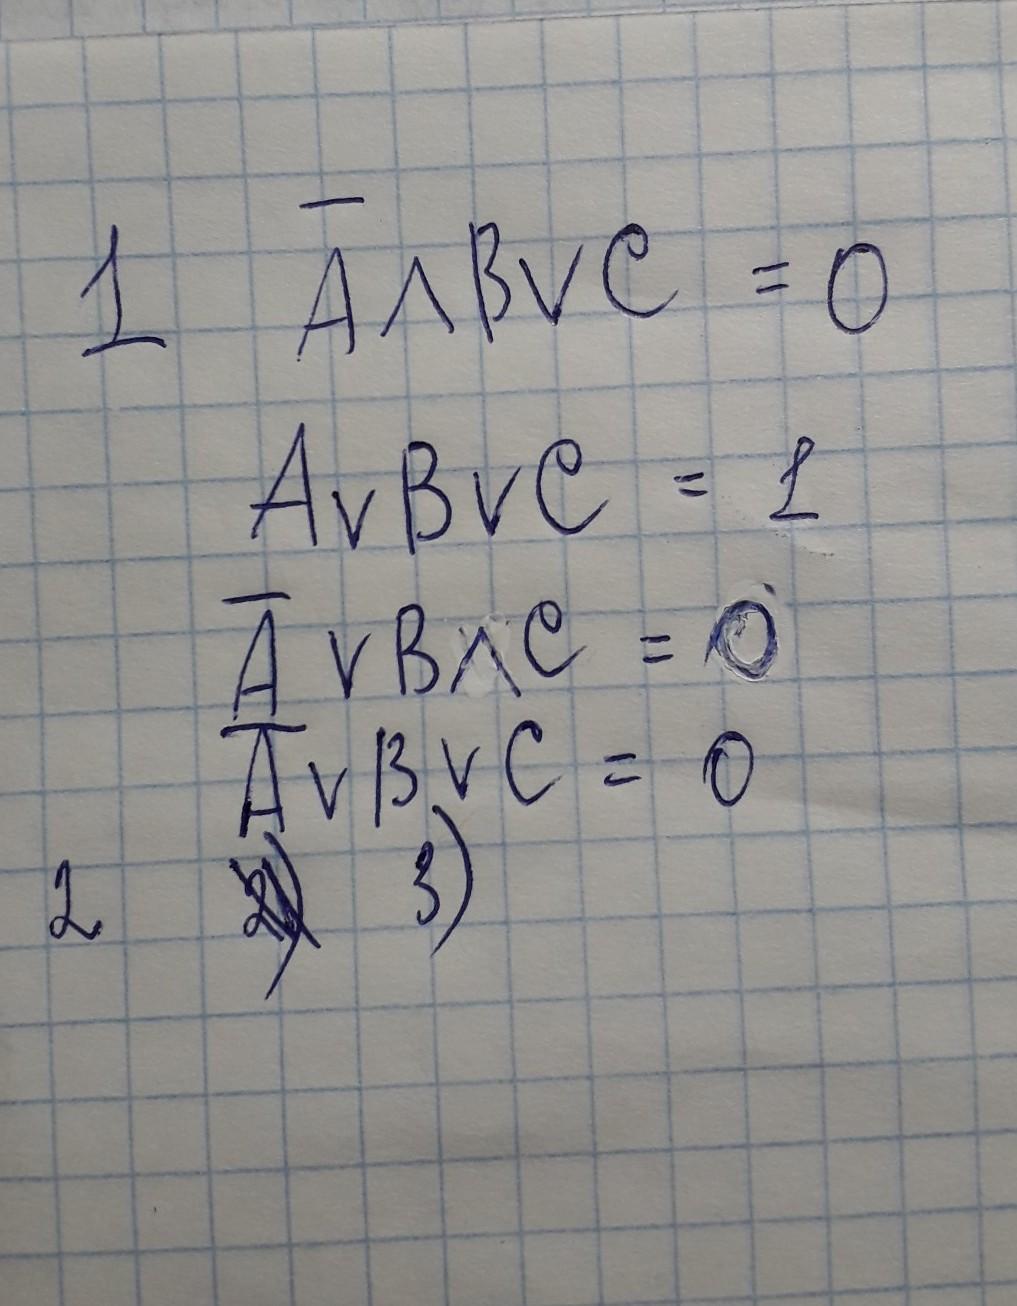 1 A̅ ∧ B ∨ C = 0
A ∨ B ∨ C = 1
A̅ ∨ B ∧ C = 0
A̅ ∨ B ∨ C = 0
2 3)